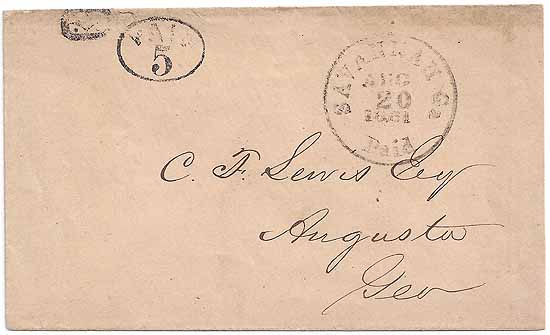 PAID
5
SAVANNAH Ga
AUG
20
1861
Paid
C. F. Lewis Esq
Augusta
Geo